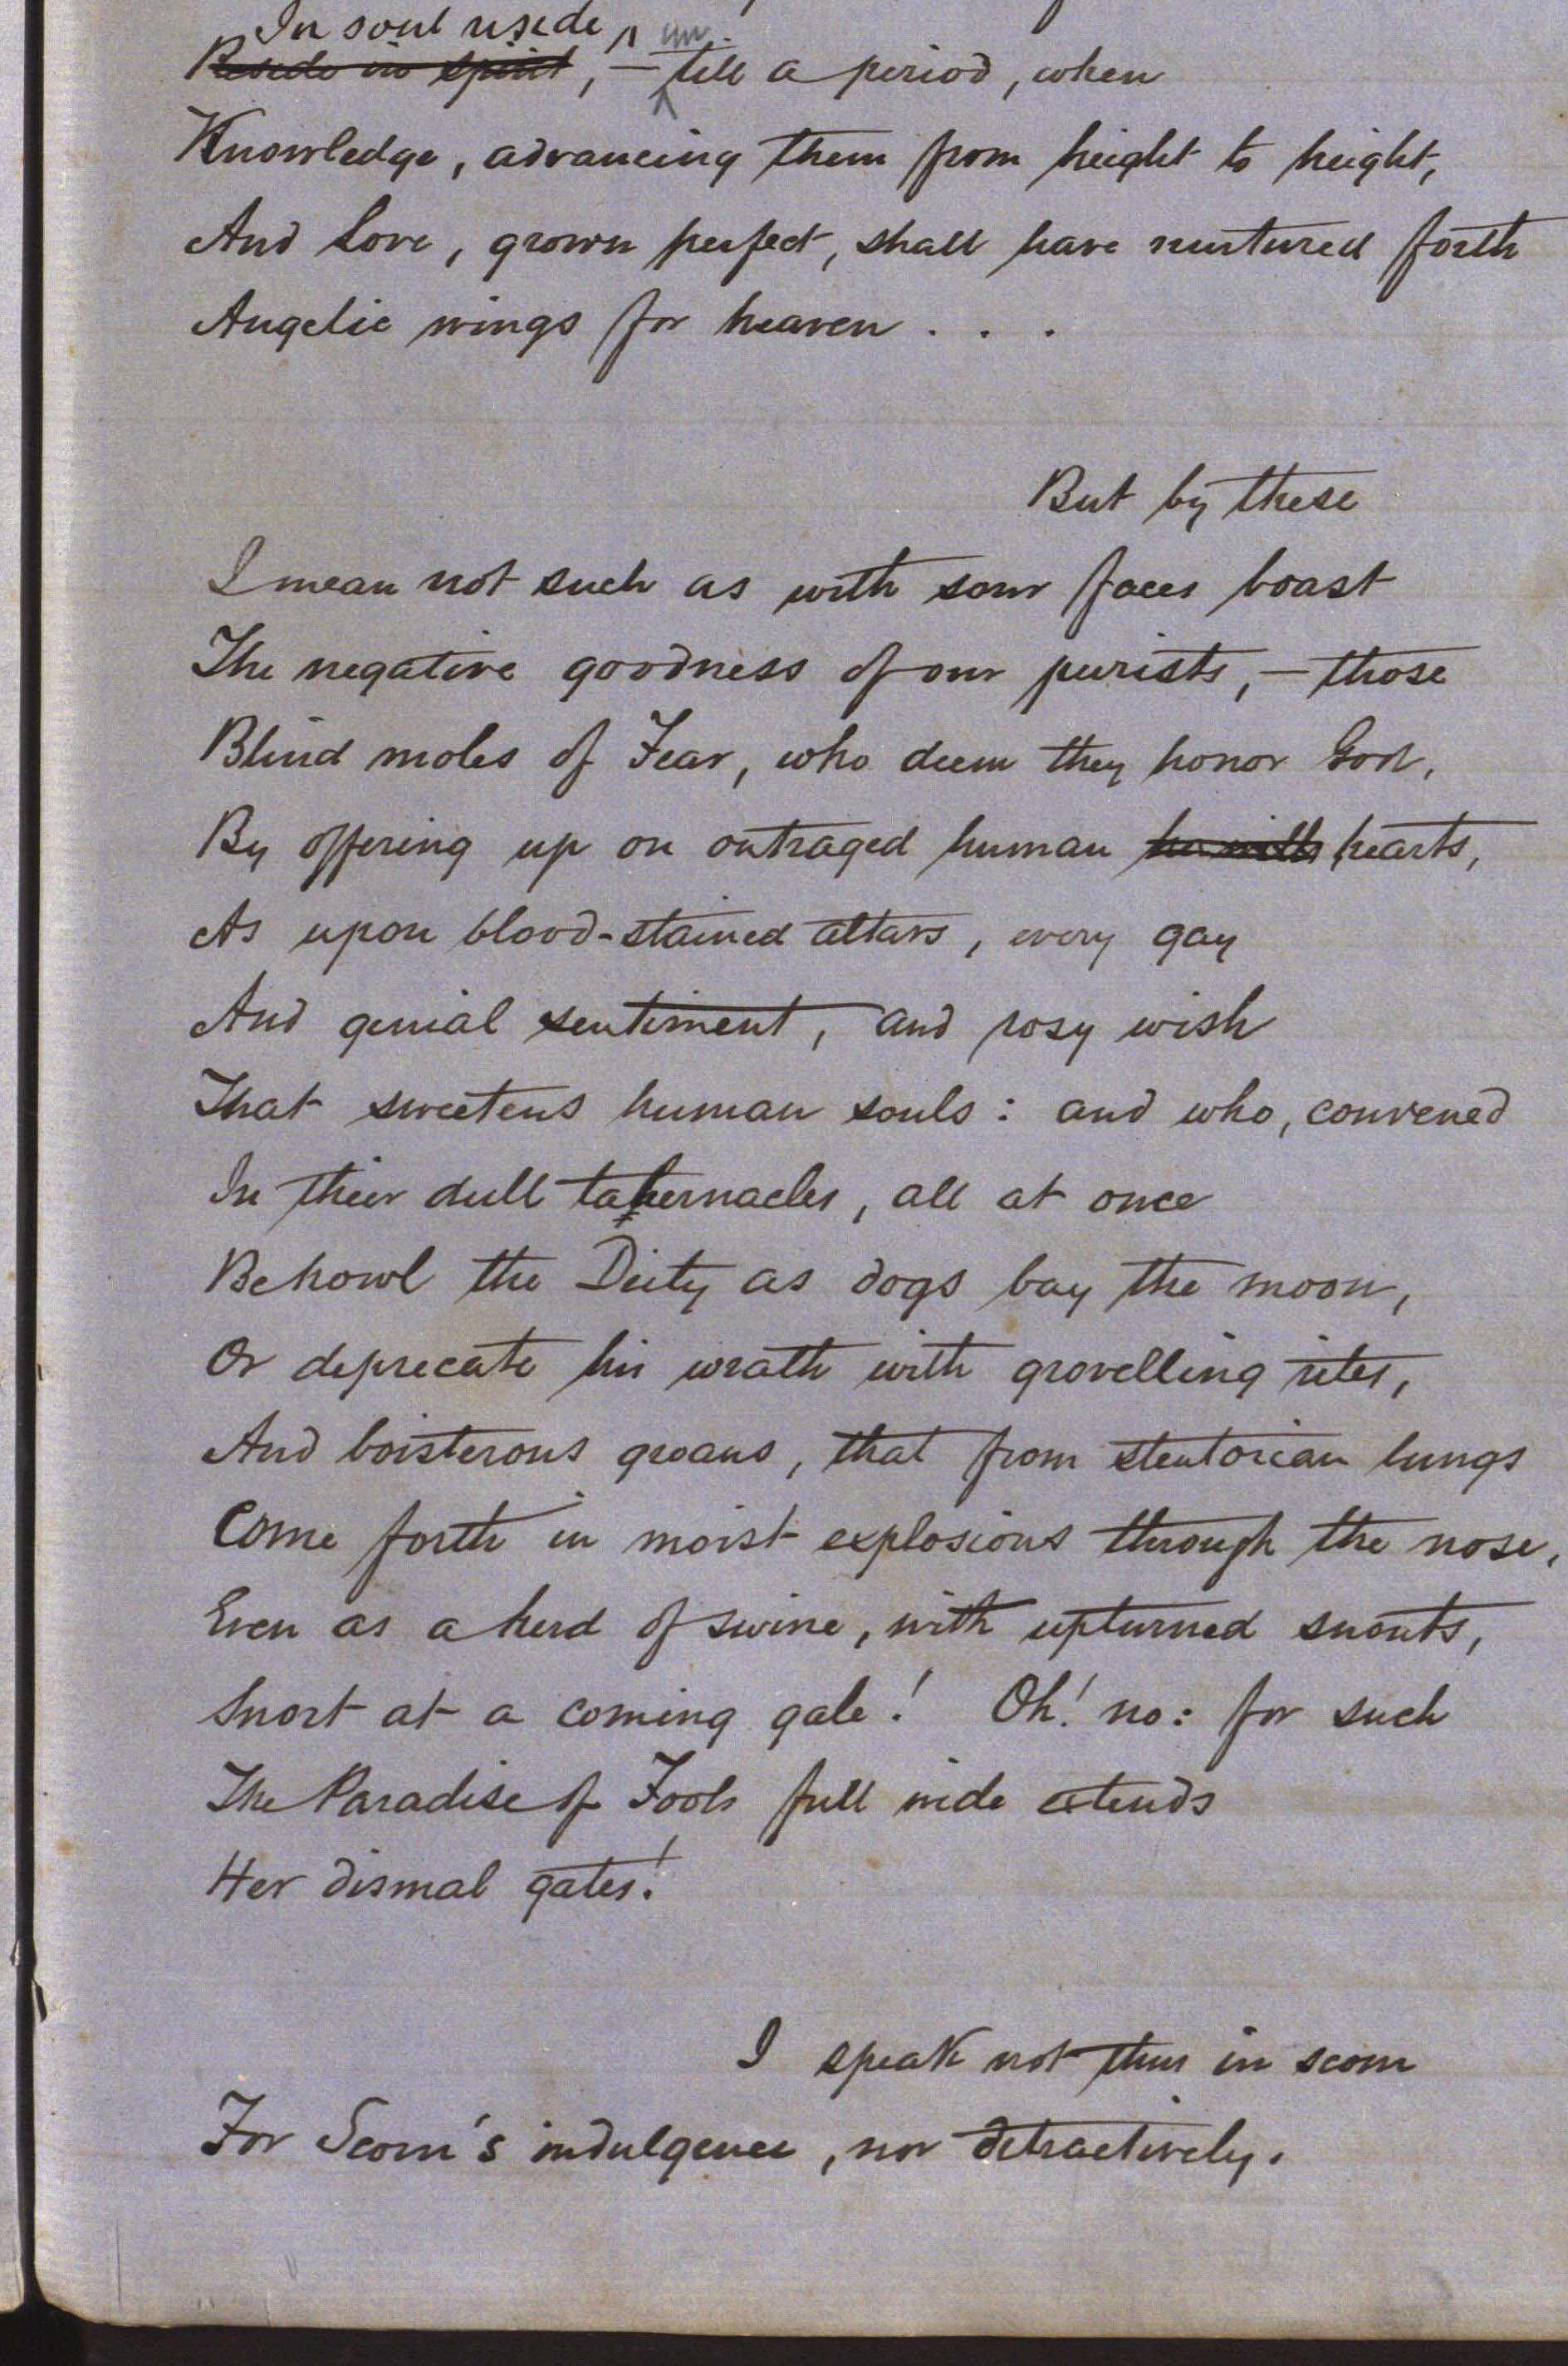 In soul reside un
Reside in spirit, — till a period, when
Knowledge, advancing them from height to height,
And Love, grown perfect, shall have nurtured forth
Angelic wings for heaven . . .
But by these
I mean not such as with sour faces boast
The negative goodness of our purists, — those
Blind moles of Fear, who deem they honor God,
By offering up on outraged human hearts,
As upon blood-stained altars, every gay
And genial sentiment, and rosy wish
That sweetens human souls: and who, convened
In their dull tabernacles, all at once
Behowl the Deity as dogs bay the moon,
Or deprecate his wrath with grovelling rites,
And boisterous groans, that from stentorian lungs
Come forth in moist explosions through the nose,
Even as a herd of swine, with upturned snouts,
Snort at a coming gale! Oh! no: for such
The Paradise of Fools full wide etends
Her dismal gates!
I speak not thus in scorn
For Scorn's indulgence, nor detractively.